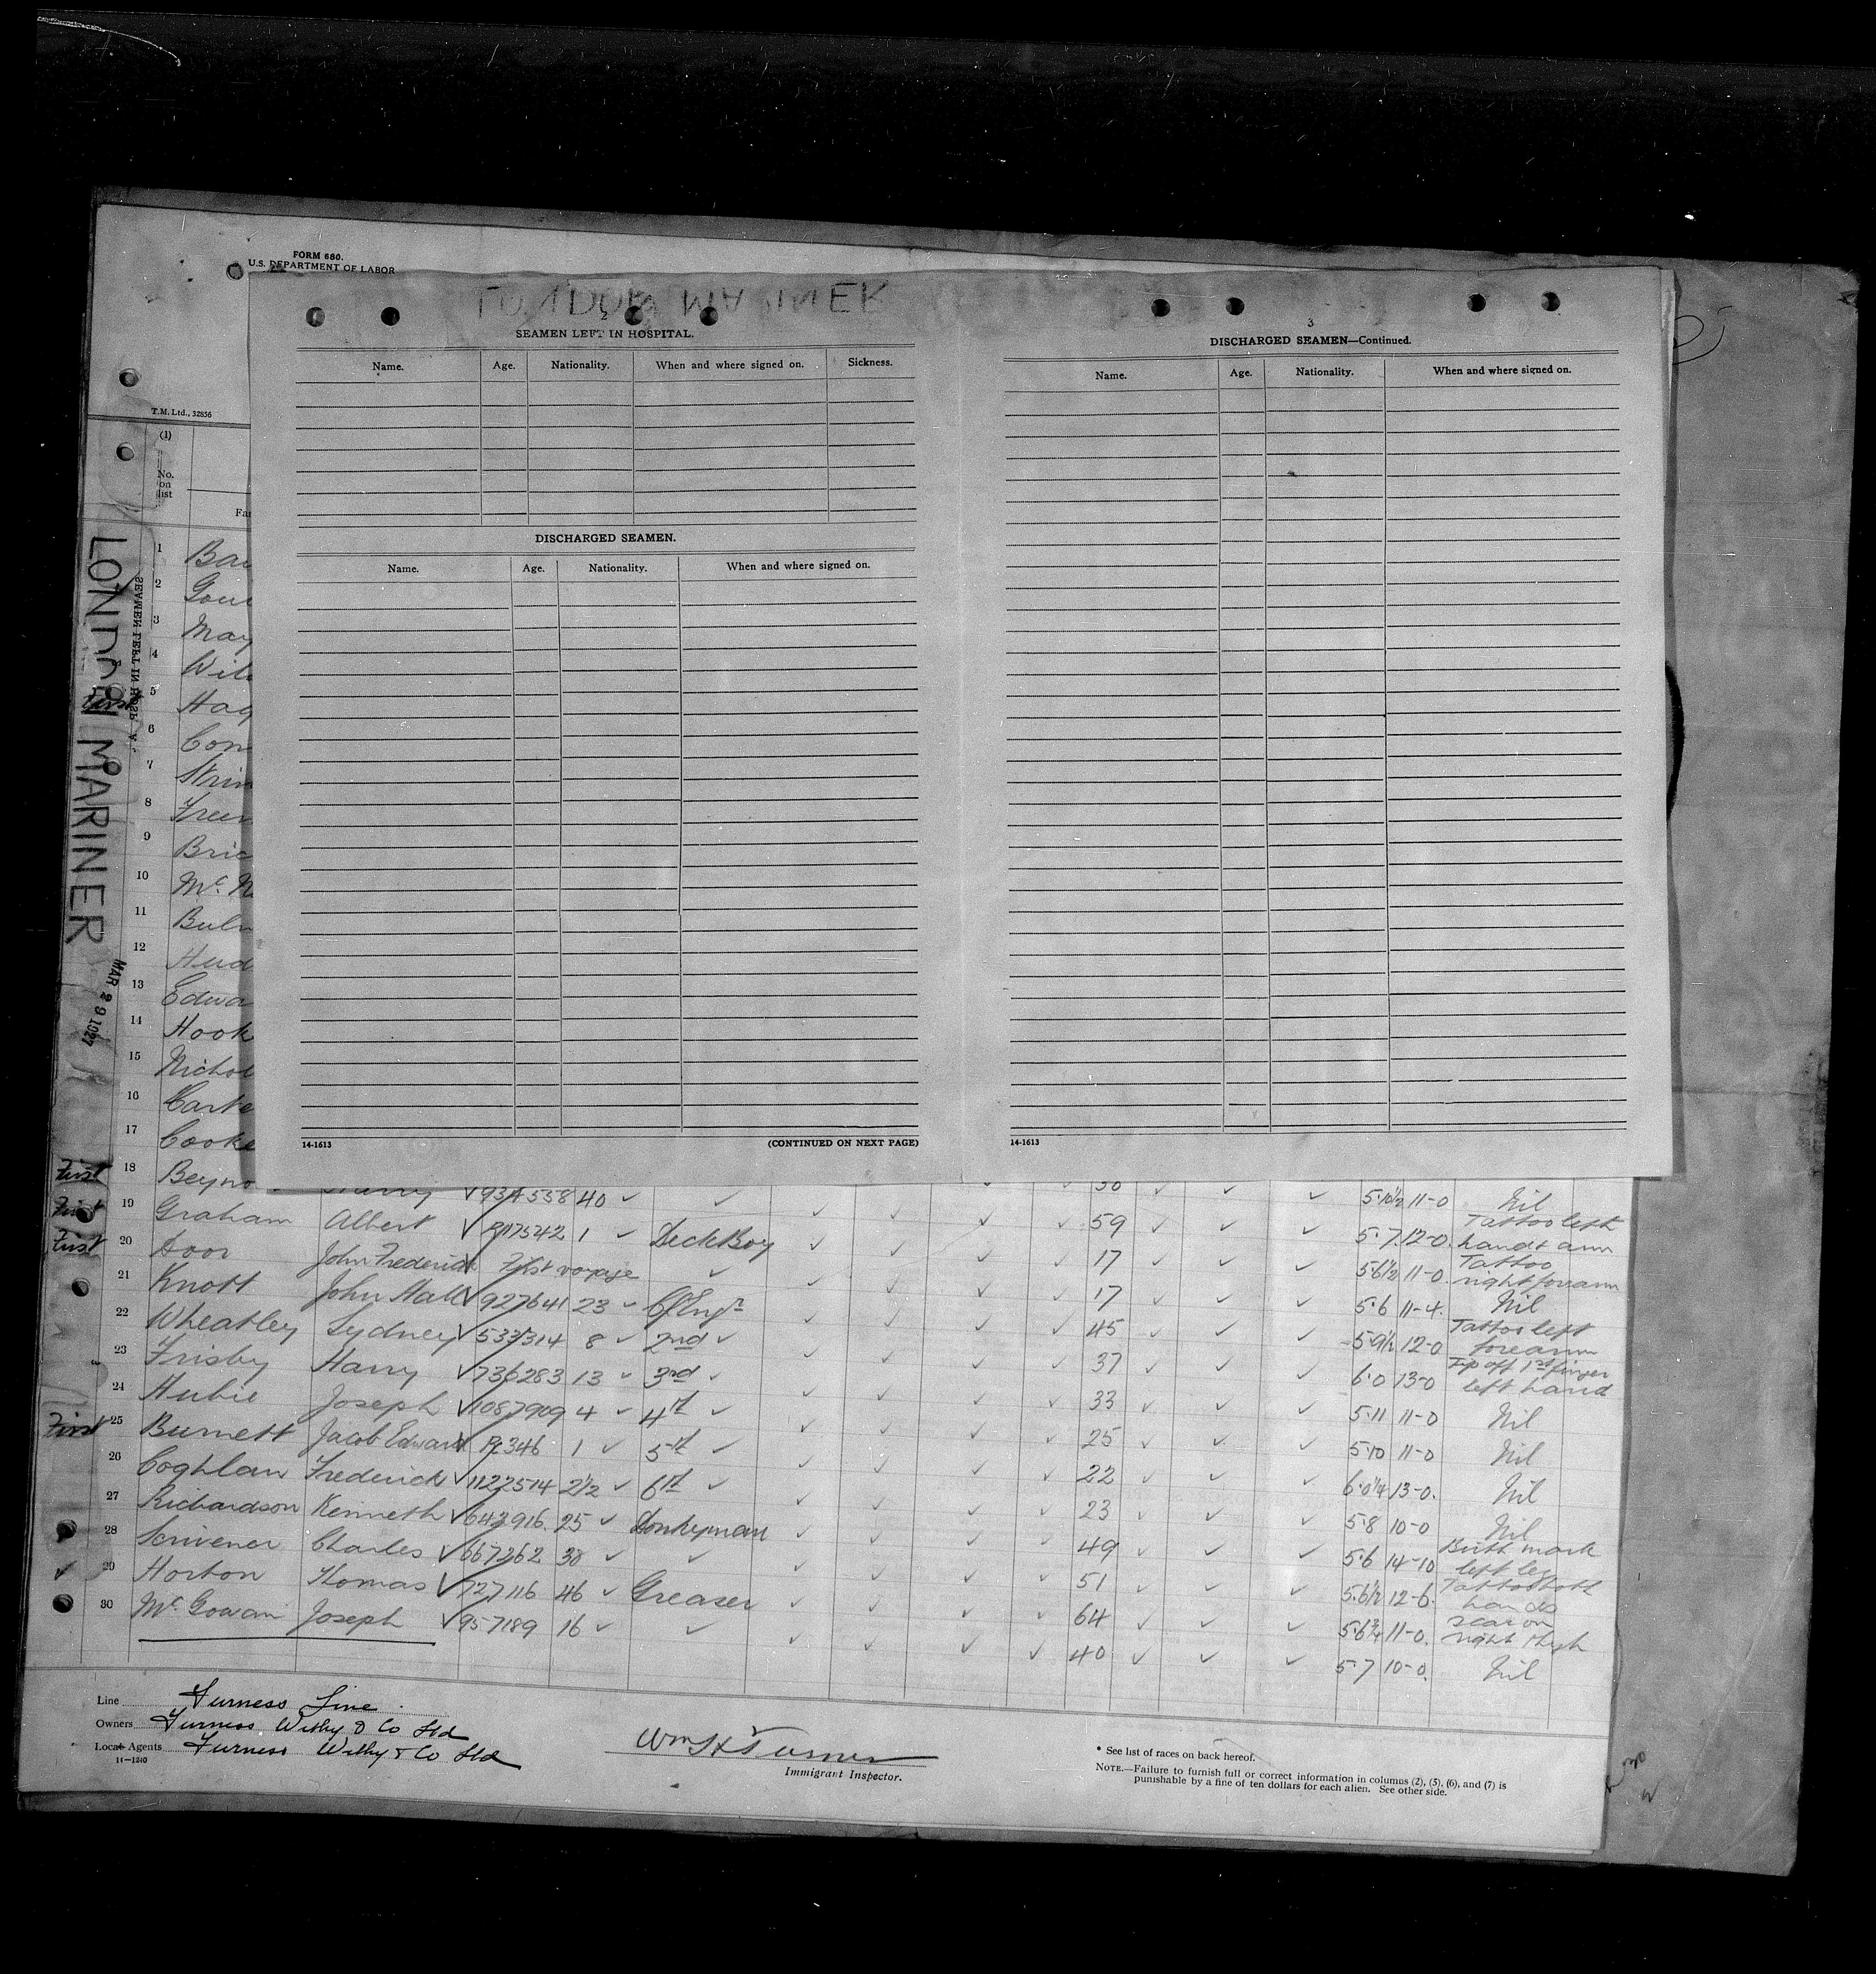 FORM 680.
U.S. DEPARTMENT OF LABOR
T.M. Ltd., 32856
(1)
No. on list
LONDON MARINER
MAR 29 1927
LONDON MARINER
2
SEAMEN LEFT IN HOSPITAL.
Name. Age. Nationality. When and where signed on. Sickness.
DISCHARGED SEAMEN.
Name. Age. Nationality. When and where signed on.
14-1613 (CONTINUED ON NEXT PAGE)
3
DISCHARGED SEAMEN—Continued.
Name. Age. Nationality. When and where signed on.
14-1613
1 Bai
2 Gou
3 May
4 Wil
First 5 Hag
6 Con
7
8 Freer
9 Bric
10 Mc. N
11 Buln
12 Hud
13 Edwa
14 Hook
15 Nichol
16 Carte
17 Cooke
First 18 Beyno Harry 934558 40 5·10½ 11-0 Nil
First 19 Graham Albert R117542 1 Deck Boy 59 5·7 12-0 Tattoo left hand & arm
First 20 John Frederick First voyage 17 5·6½ 11-0 Tattoo right forearm
21 Knott John Hall 927641 23 Cf Engr 17 5·6 11-4 Nil
22 Wheatley Sydney 533314 8 2nd 45 5·9½ 12-0 Tattoo left forearm
23 Frisby Harry 736283 13 3rd 37 6·0 13-0 Tip off 1st finger left hand
24 Hubie Joseph 1087909 4 4th 33 5·11 11-0 Nil
First 25 Burnett Jacob Edward 346 1 5th 25 5·10 11-0 Nil
26 Coghlan Frederick 1122514 2½ 6th 22 6·0¼ 13-0. Nil
27 Richardson Kenneth 643916 25 Donkeyman 23 5·8 10-0 Nil
28 Scrivener Charles 667262 38 49 5·6 14-10 Birth mark left leg
29 Horton Thomas 727116 46 Greaser 51 5·6½ 12-6 Tattoo both hands
30 McGowan Joseph 957189 16 64 5·6¾ 11-0. scar on right thigh
40 5·7 10-0. Nil
Line Furness Line
Owners Furness Withy & Co Ltd
Local Agents Furness Withy & Co Ltd
14—1240
Wm H Turner
Immigrant Inspector.
* See list of races on back hereof.
NOTE.—Failure to furnish full or correct information in columns (2), (5), (6), and (7) is
punishable by a fine of ten dollars for each alien. See other side.